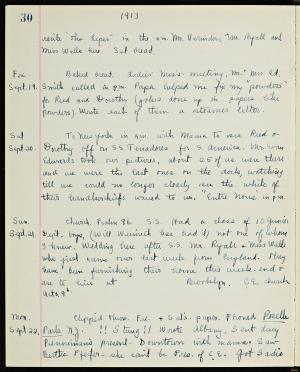 30
1913
write "The Leper" in the a.m. Mr. and Miss Wells here. S.S. bread.
Fri.
Sept. 19.
Baked bread. Ladies' Miss. meeting. Mrs. Ed.
Smith called in a.m. Papa helped me fix my "powders"
for Reid and Dorothy (jokes done up in papers like
powders). Wrote each of them a steamer letter.
Sat
Sept. 20.
To New York in a.m. with Mama to see Reid &
Dorothy off on S.S. Tenadores for S. America. Mr.
Edwards took our pictures, about 25 of us were there
and we were the last ones on the dock, watching
till we could no longer clearly see the white of
their handkerchiefs waved to us. "Entre Nous" in p.m.
Sun.
Sept. 21.
Church. Psalm 86. S.S. Had a class of 10 junior
Dept. boys, (Will has had it) not one of whom
I knew. Wedding here after S.S. Mr. Ryall & Miss Wells
who just came over last week from England. They
have been furnishing their home this week-end &
are to live at Brooklyn. C.E. church
Acts 9
Mon.
Sept. 22.
Clipped Thurs. Fri. & Sat's. papers. Phoned
Park N.J. !! Sting!! Wrote Albany. Sent Lucy
present. Downtown with mama. Saw
Bertie Pfeifer - she can't be Pres. of C.E. Got Sadie